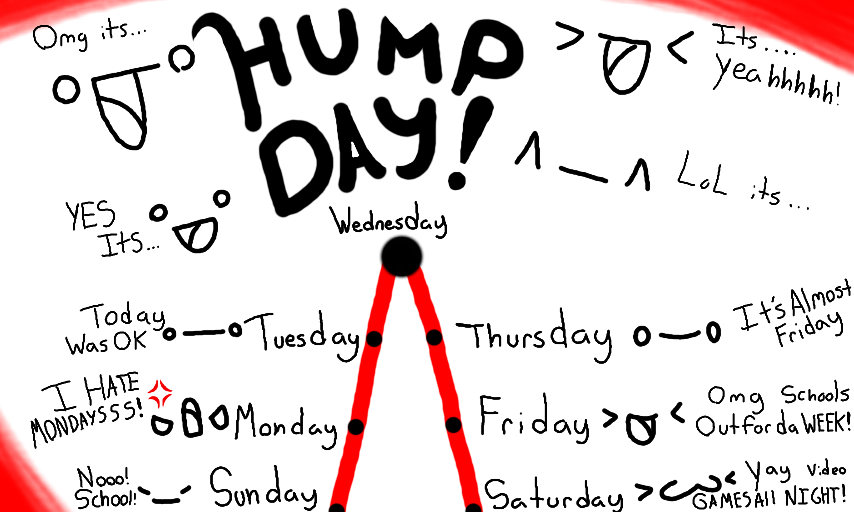 Omg its...
HUMP
DAY!
Its....
Yeahhhhh!
LoL its...
YES
Its...
Wednesday
Today
Was OK
Tuesday
Thursday
It's Almost
Friday
I HATE
MONDAYSSS!
Monday
Friday
Omg Schools
Out for da WEEK!
Nooo!
School!
Sunday
Saturday
Yay Video
GAMES All NIGHT!